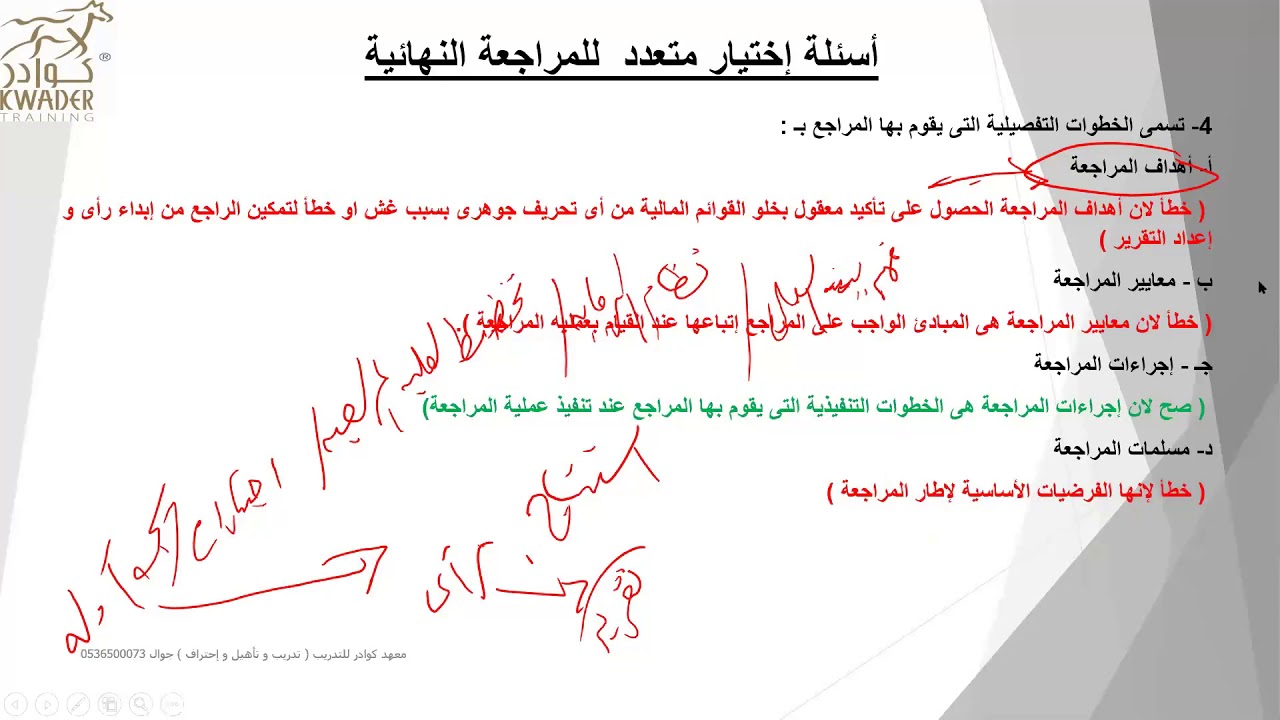 كوادر
®
KWADER
TRAINING
أسئلة إختيار متعدد للمراجعة النهائية
4- تسمى الخطوات التفصيلية التى يقوم بها المراجع بـ :
أ- أهداف المراجعة
( خطأ لان أهداف المراجعة الحصول على تأكيد معقول بخلو القوائم المالية من أى تحريف جوهرى بسبب غش او خطأ لتمكين الراجع من إبداء رأى و
إعداد التقرير )
ب - معايير المراجعة
( خطأ لان معايير المراجعة هى المبادئ الواجب على المراجع إتباعها عند القيام بعمليه المراجعة )
جـ - إجراءات المراجعة
( صح لان إجراءات المراجعة هى الخطوات التنفيذية التى يقوم بها المراجع عند تنفيذ عملية المراجعة)
د- مسلمات المراجعة
( خطأ لإنها الفرضيات الأساسية لإطار المراجعة )
استنتاج
رأى
تقرير
معهد كوادر للتدريب ( تدريب و تأهيل و إحتراف ) جوال 0536500073